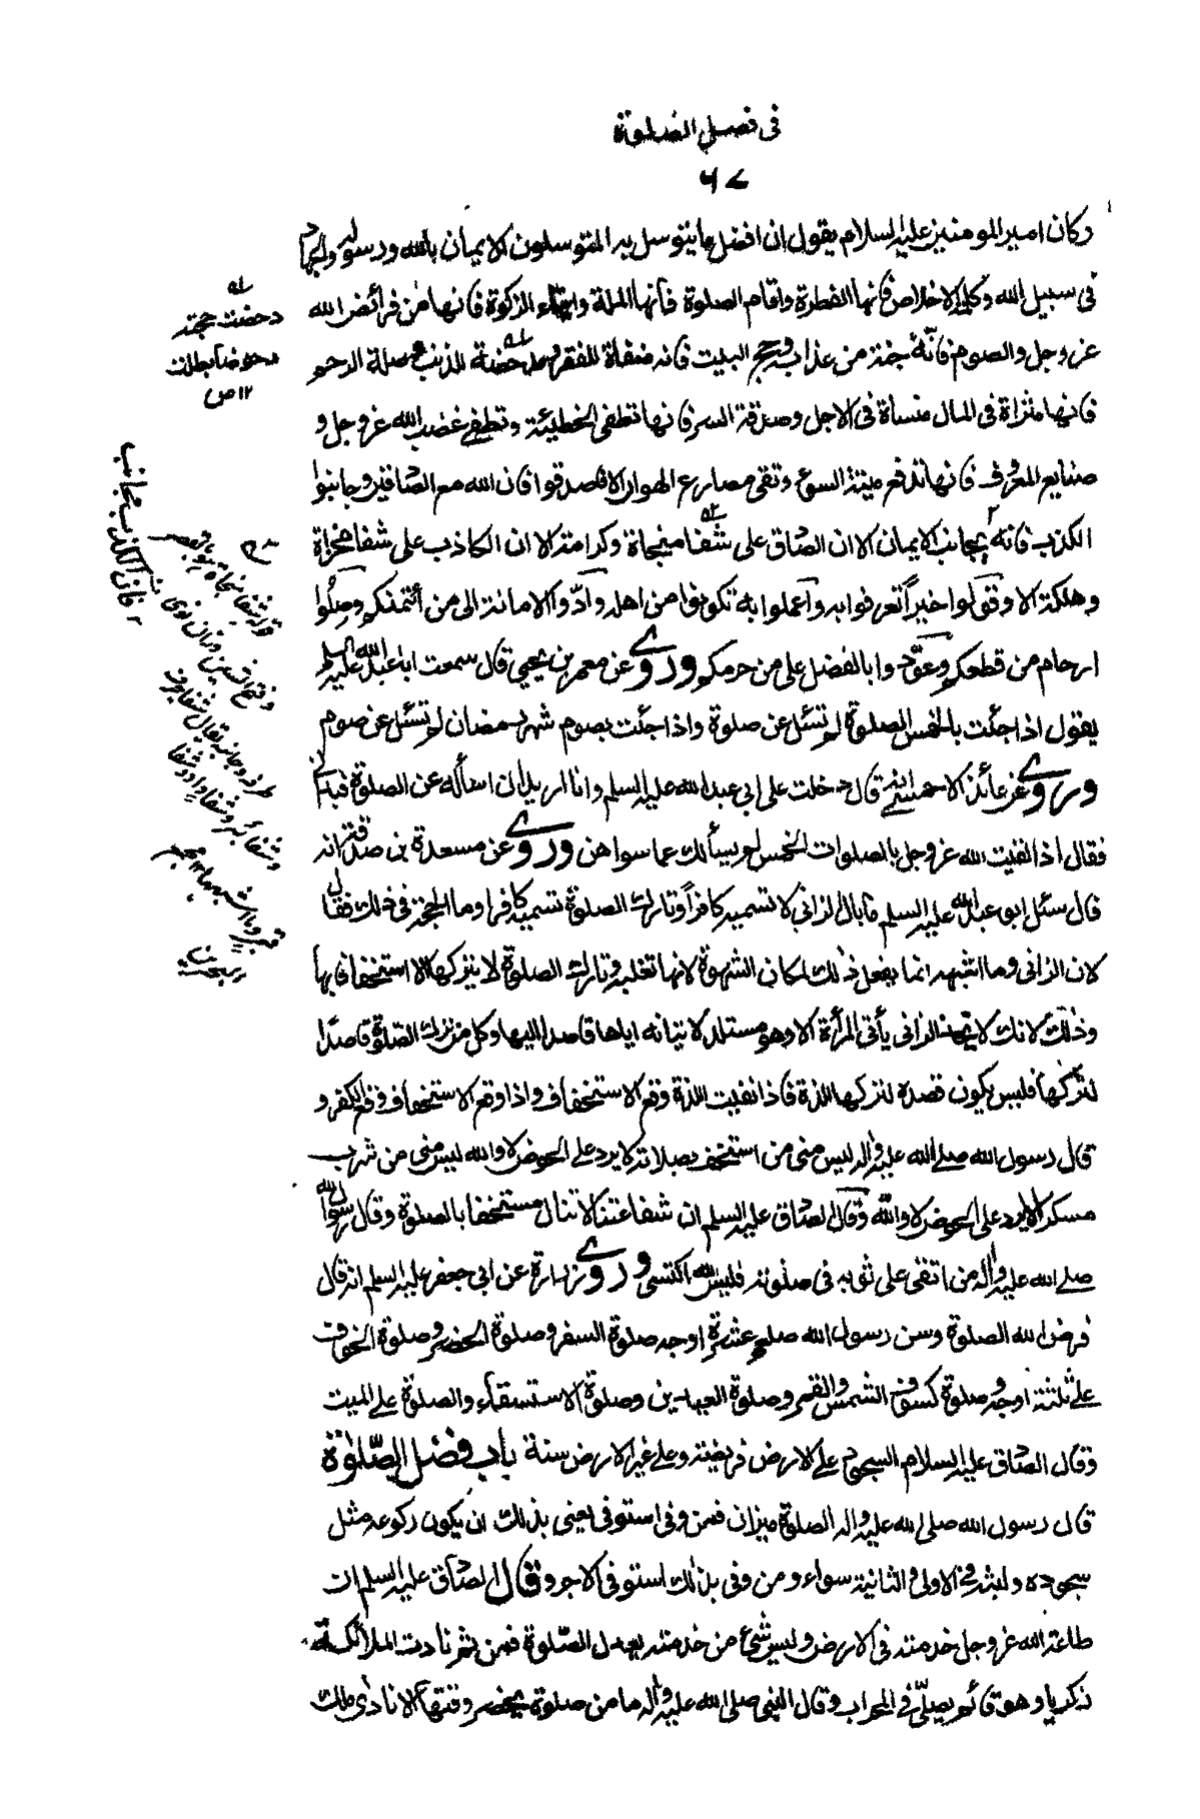 فى فضل الصلوة
٦٧
وكان امير المومنين عليه السلام يقول ان افضل ما يتوسل به المتوسلون الايمان بالله ورسوله والجهاد
فى سبيل الله وكلمة الاخلاص فانها الفطرة واقام الصلوة فانها الملة وايتاء الزكوة فانها من فرائض الله
عزوجل والصوم فانّه جنة من عذابه وحج البيت فانه منفاة للفقر ومدحضة للذنب وصلة الرحم
فانها مثراة فى المال منساة فى الاجل وصدقة السر فانها تطفى الخطيئة وتطفى غضب الله عزوجل و
صنايع المعروف فانها تدفع ميتة السوء وتقى مصارع الهوان الا فاصدقوا فان الله مع الصادقين وجانبوا
الكذب فانه يجانب الايمان الا ان الصادق على شفا منجاة وكرامة الا ان الكاذب على شفا مخزاة
وهلكة الا وقولوا خيراً تعرفوا به واعملوا به تكونوا من اهله وادّوا الامانة الى من ائتمنكم وصلوا
ارحام من قطعكم وعوّدوا بالفضل على من حرمكم وروى عن معمر بن يحيى قال سمعت ابا عبد الله عليه السلم
يقول اذا جئت بالخمس الصلوة لم تسئل عن صلوة واذا جئت بصوم شهر رمضان لم تسئل عن صوم
وروى عن عائذ الاحمسى انه قال دخلت على ابى عبد الله عليه السلم وانا اريد ان اسأله عن الصلوة فبدانى
فقال اذا لقيت الله عزوجل بالصلوات الخمس لم يسألك عما سواهن وروى عن مسعدة بن صدقة انه
قال سئل ابو عبد الله عليه السلم ما بال الزانى لا تسميه كافراً وتارك الصلوة تسميه كافرا وما الحجة فى ذلك فقال
لان الزانى وما اشبهه انما يفعل ذلك لمكان الشهوة لانها تغلبه وتارك الصلوة لا يتركها الا استخفافا بها
وذلك لانك لا تجد الزانى يأتى المرأة الا وهو مستلذ لاتيانه اياها قاصدا اليها وكل من ترك الصلوة قاصدًا
لتركها فليس يكون قصده لتركها اللذة فاذا نفيت اللذة وقع الاستخفاف واذا وقع الاستخفاف وقع الكفر و
قال رسول الله صلى الله عليه واله ليس منى من استخف بصلاته لا يرد على الحوض لا والله ليس منى من شرب
مسكرا لا يرد على الحوض لا والله وقال الصادق عليه السلم ان شفاعتنا لا تنال مستخفا بالصلوة وقال رسول الله
صلى الله عليه واله من اتقى على ثوبه فى صلوته فليس لله اكتسى وروى زرارة عن ابى جعفر عليه السلم انه قال
فرض الله الصلوة وسن رسول الله صلعم عشرة اوجه صلوة السفر وصلوة الحضر وصلوة الخوف
على ثلثة اوجه وصلوة كسوف الشمس والقمر وصلوة العيدين وصلوة الاستسقاء والصلوة على الميت
وقال الصادق عليه السلام السجود على الارض فريضة وعلى غير الارض سنة باب فضل الصّلوة
قال رسول الله صلى الله عليه واله الصلوة ميزان فمن وفى استوفى يعنى بذلك ان يكون ركوعه مثل
سجوده ولبثه فى الاولى والثانية سواء ومن وفى بذلك استوفى الاجر وقال الصادق عليه السلم ان
طاعة الله عزوجل خدمته فى الارض وليس شئ من خدمته يعدل الصّلوة فمن ثم نادت الملائكة
زكريا وهو قائم يصلّى فى المحراب وقال النبى صلى الله عليه واله ما من صلوة يحضر وقتها الا نادى ملك
دحضت حجته
دحوضا بطلت
١٢ ص
فان الكذب مجانب